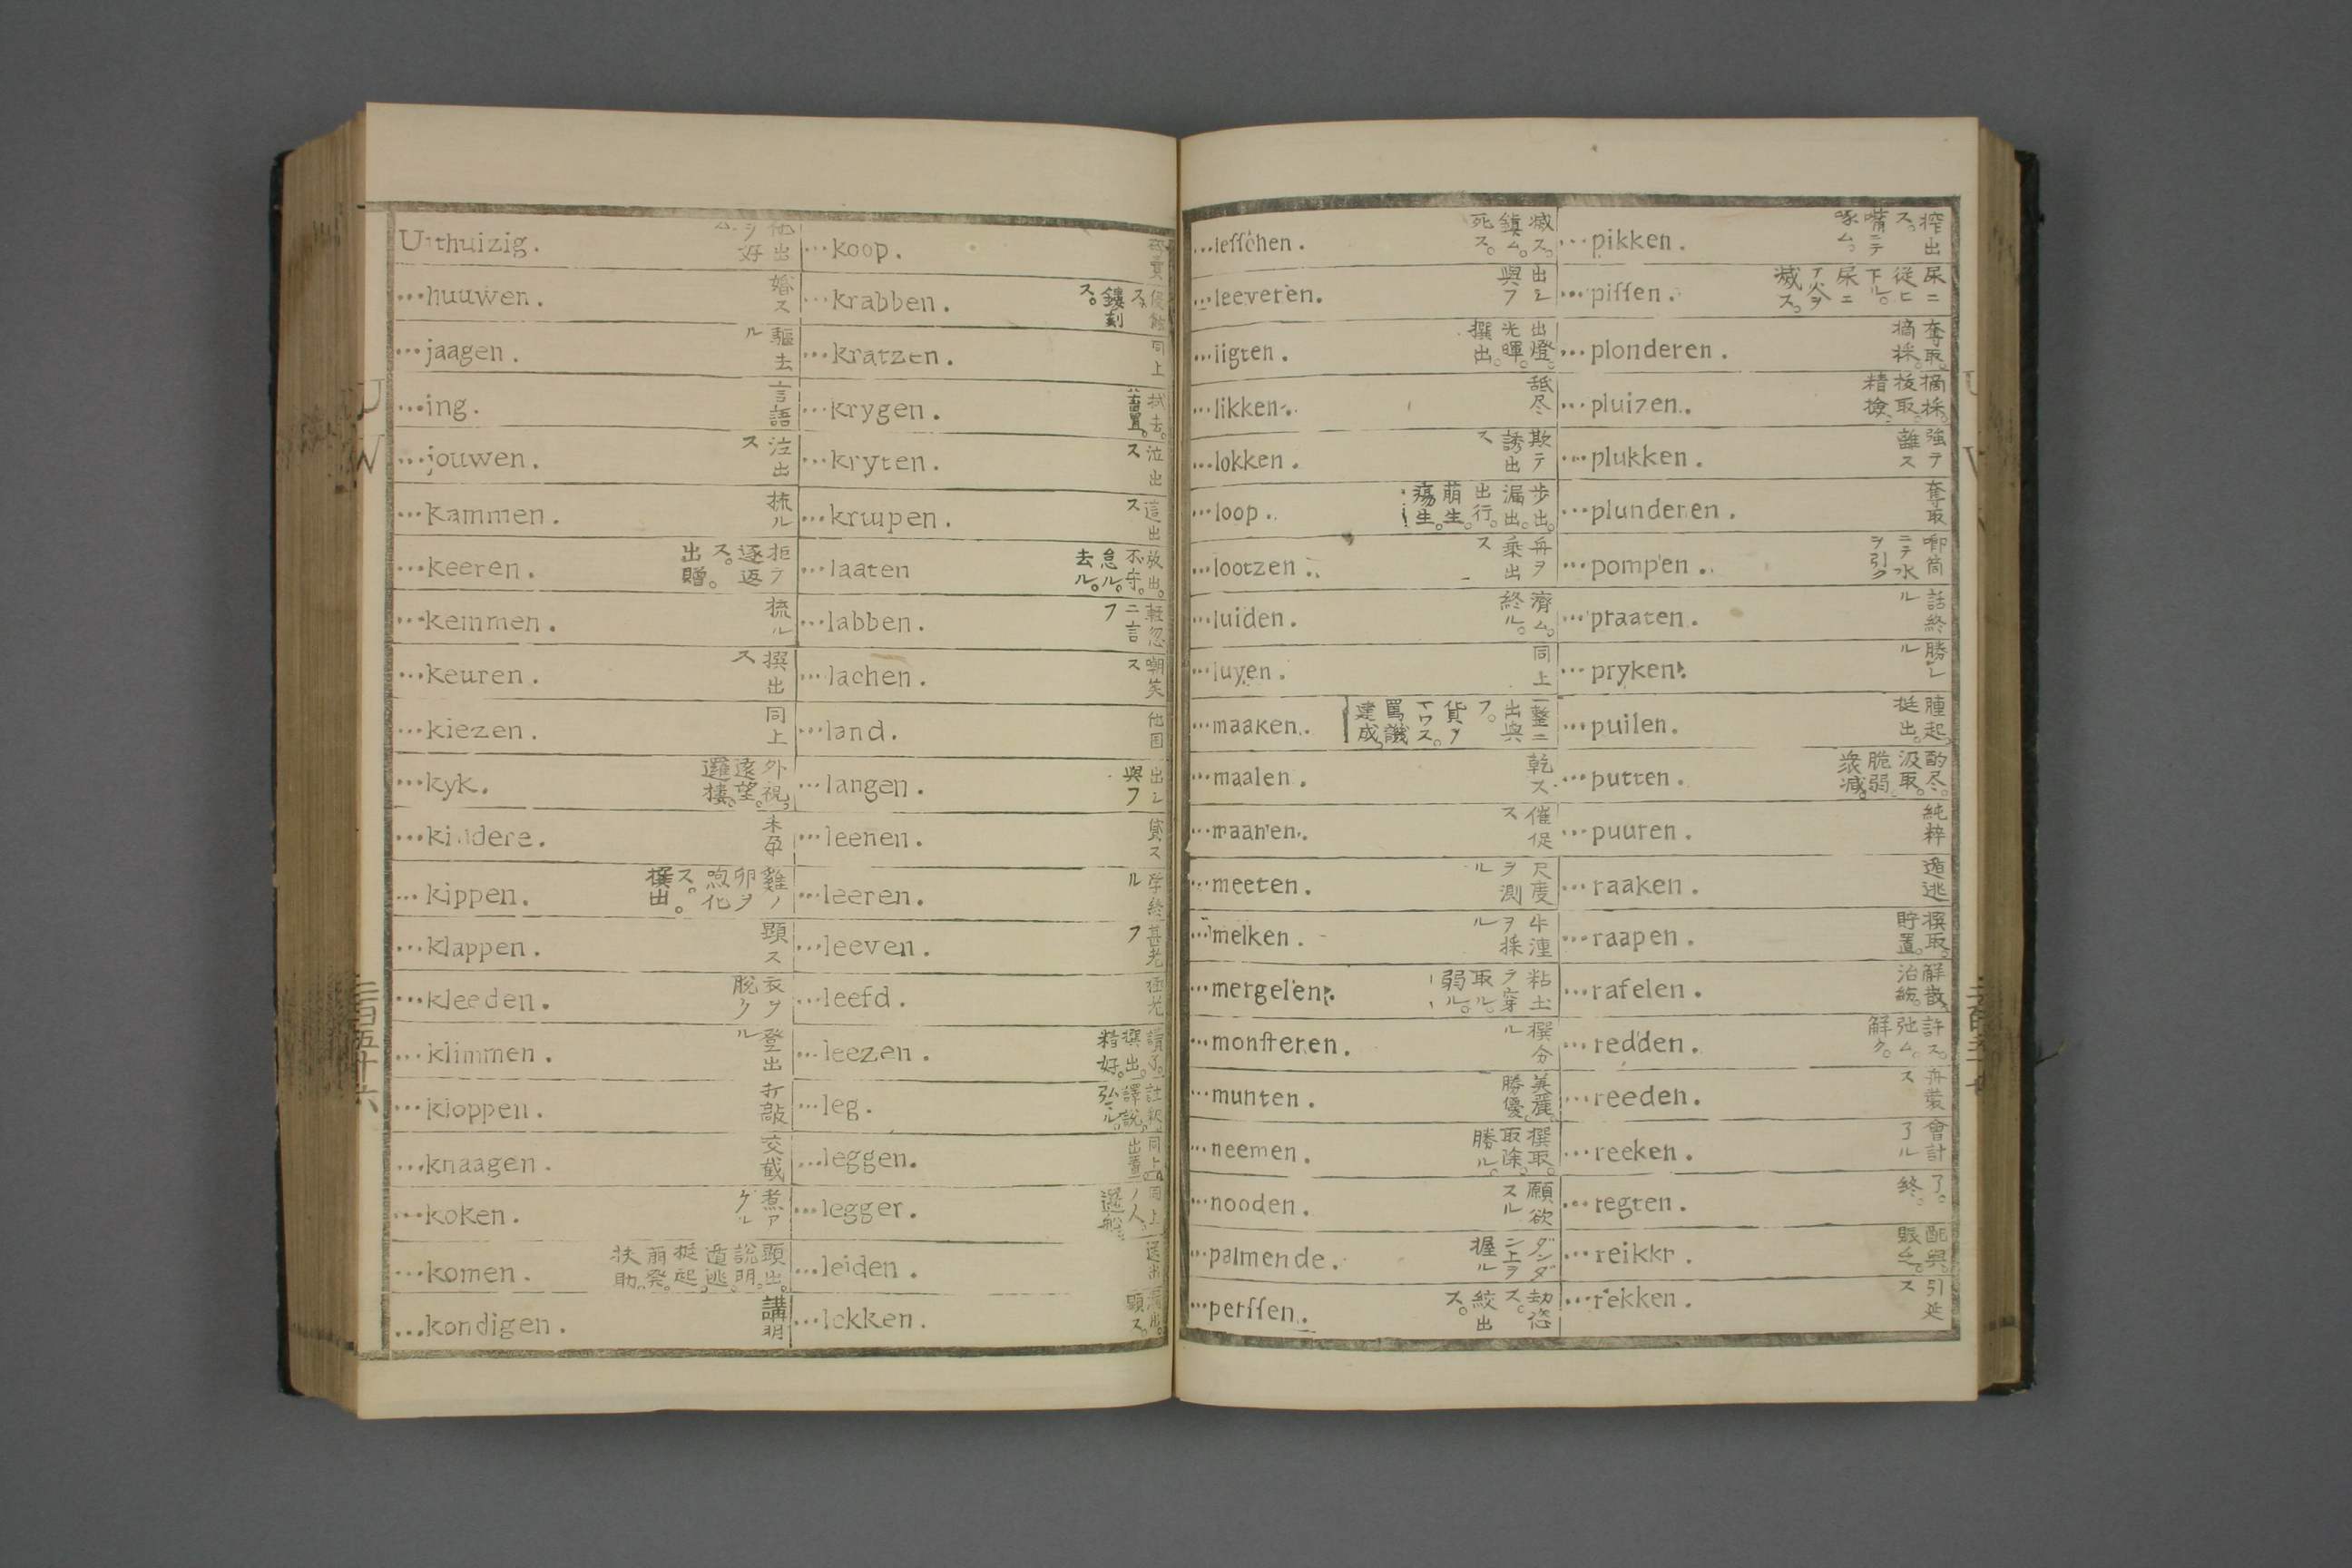 Uithuizig. 他出ヲ好ム
...huuwen. 婚ス
...jaagen. 驅去ル
...ing. 言語
...jouwen. 泣出ス
...kammen. 梳ル
...keeren. 拒テ逐返ス。出贈。
...kemmen. 梳ル
...keuren. 撰出ス
...kiezen. 同上
...kyk. 外視。遠望。邏樓。
...kindere. 未孕
...kippen. 雞ノ卵ヲ喣化ス。撰出。
...klappen. 顕ス
...kleeden. 衣ヲ脱クル
...klimmen. 登出
...kloppen. 打敲
...knaagen. 交截
...koken. 煮アゲル
...komen. 顕出。説明。遁逃。挺起。萠発。扶助。
...kondigen. 講明
...koop.
...krabben. ス。鏤刻ス。
...kratzen. 同上
...krygen. 拭去。蓄置。
...kryten. 泣出ス
...kruipen. 這出ス
...laaten 放出。不守。怠ル。去ル。
...labben. 軽忽ニ言フ
...lachen. 嘲笑ス
...land. 他国
...langen. 出シ與フ
...leenen. 貸ス
...leeren. 学終ル
...leeven. 甚老フ
...leefd. 極老
...leezen. 讀了。撰出。精好。
...leg. 註釈。譯説。弘ル。
...leggen. 同上。出置
...legger. 同上ノ人。
...leiden. 送出
...lekken. 漏出。顕ス。
...lesschen. 滅ス。鎮ム。死ス。
...leeveren. 出シ與フ
...ligten. 出燈。光暉。撰出。
...likken. 舐尽
...lokken. 欺テ誘出ス
...loop. 歩出。漏出。出行。萠生。瘍生。
...lootzen. 舟ヲ乗出ス
...luiden. 濟ム。終ル。
...luyen. 同上
...maaken. 整ニ出與フ。貨ヲイワス。罵譏。建成。
...maalen. 乾ス
...maanen. 催促ス
...meeten. 尺度ヲ測ル
...melken. 牛湩ヲ採ル
...mergelen. 粘土ヲ穿取ル。弱ル。
...monsteren. 撰分ル
...munten. 美麗。勝優。
...neemen. 撰取。取除。勝ル。
...nooden. 願欲スル
...palmende. ダンダン上ヲ握ル
...perssen. 劫恣ス。絞出ス。
...pikken. 搾出ス。嘴ニテ啄ム。
...pissen. 尿ニ従ヒ下ル。尿ニテ火ヲ滅ス。
...plonderen. 奪取。摘採。
...pluizen. 摘採。抜取。精撿。
...plukken. 強テ離ス
...plunderen. 奪取
...pompen. 喞筒ニテ水ヲ引ク
...praaten. 話終ル
...pryken. 勝レル
...puilen. 腫起。挺出。
...putten. 酌尽。汲取。脆弱。衆滅。
...puuren. 純粹
...raaken. 遁逃
...raapen. 撰取。貯置。
...rafelen. 解散。治紛。
...redden. 許ス。弛ム。解ク。
...reeden. 舟装ス
...reeken. 會計了ル
...regten. 了。終。
...reikkr. 配與。賑乞。
...rekken. 引延ス
U W
三百五十六